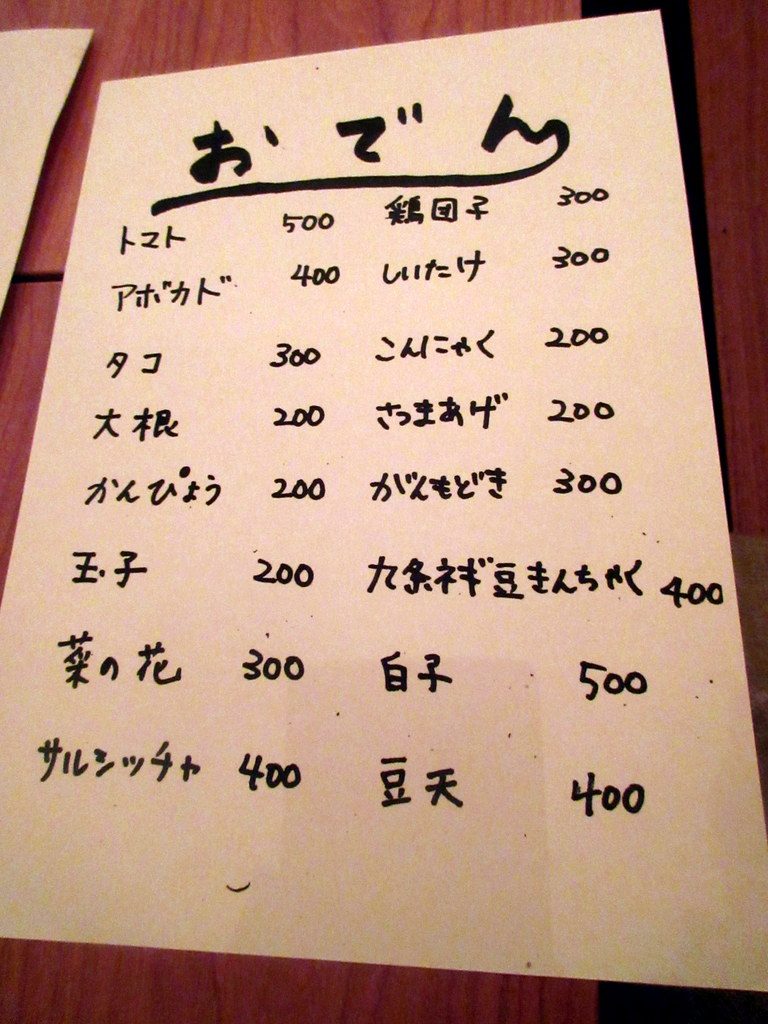 おでん
トマト 500
アボカド 400
タコ 300
大根 200
かんぴょう 200
玉子 200
菜の花 300
サルシッチャ 400
鶏団子 300
しいたけ 300
こんにゃく 200
さつまあげ 200
がんもどき 300
九条ネギ豆きんちゃく 400
白子 500
豆天 400